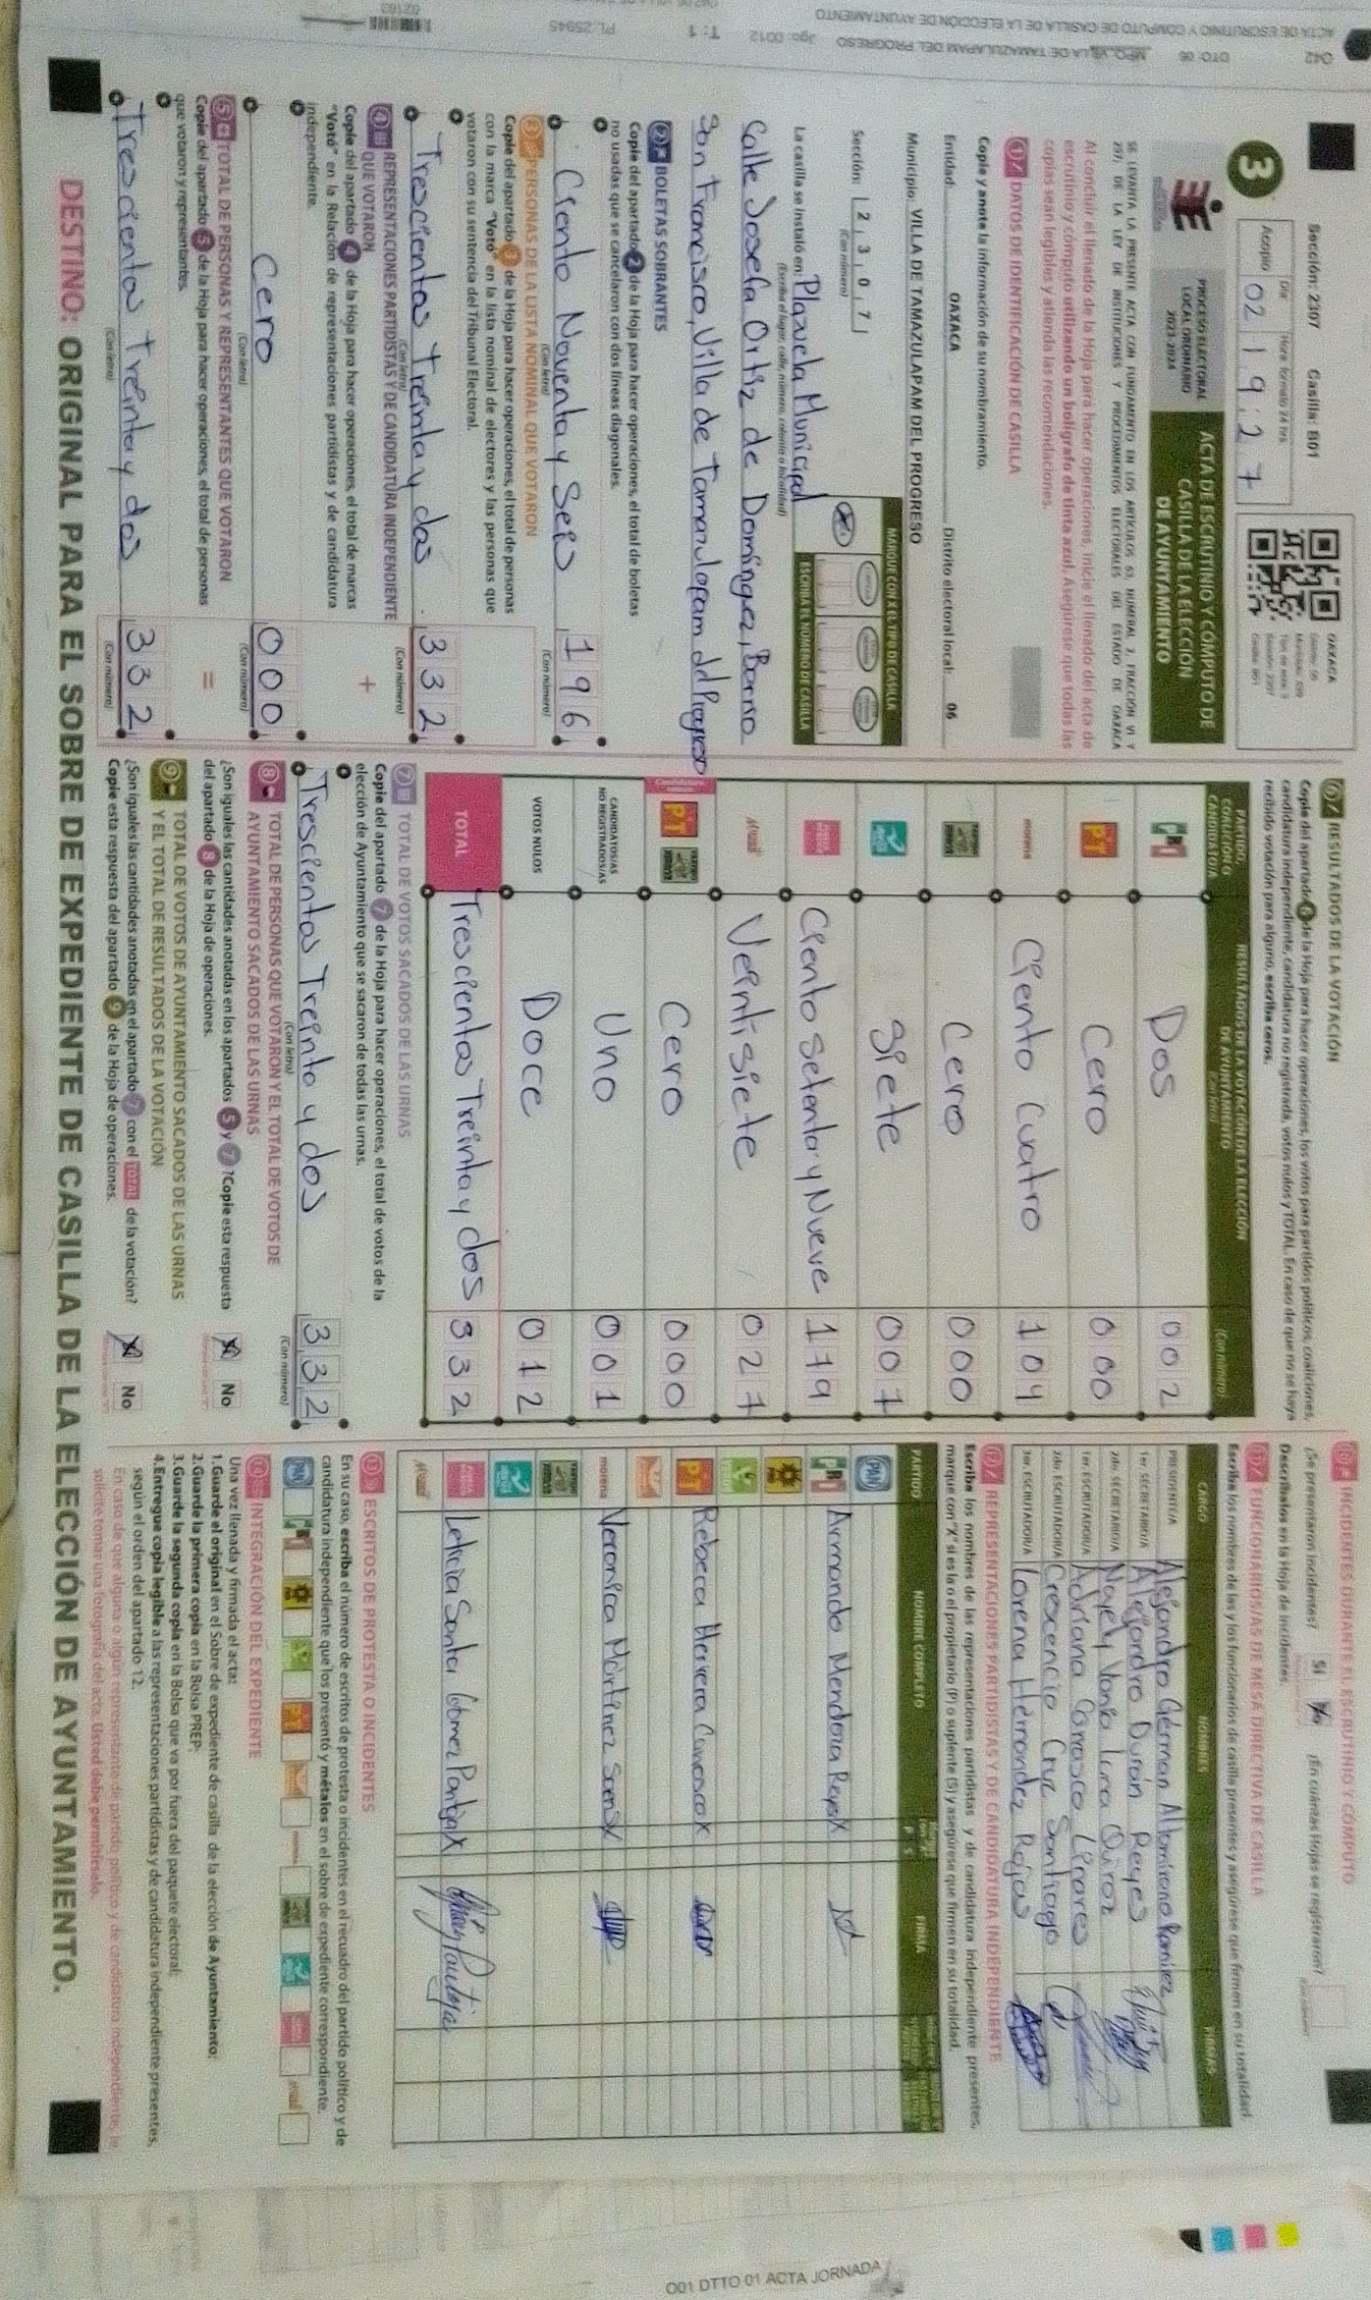 042 DTO: 06 MPO: VILLA DE TAMAZULAPAM DEL PROGRESO
ACTA DE ESCRUTINIO Y CÓMPUTO DE CASILLA DE LA ELECCIÓN DE AYUNTAMIENTO
Sección: 2307 Casilla: B01
3
Acopio
Día Hora formato 24 hrs
02 19:27
OAXACA
PROCESO ELECTORAL
LOCAL ORDINARIO
2023-2024
ACTA DE ESCRUTINIO Y CÓMPUTO DE
CASILLA DE LA ELECCIÓN
DE AYUNTAMIENTO
SE LEVANTA LA PRESENTE ACTA CON FUNDAMENTO EN LOS ARTÍCULOS 63, NUMERAL 2, FRACCIÓN VI Y
297, DE LA LEY DE INSTITUCIONES Y PROCEDIMIENTOS ELECTORALES DEL ESTADO DE OAXACA
Al concluir el llenado de la Hoja para hacer operaciones, inicie el llenado del acta de
escrutinio y cómputo utilizando un bolígrafo de tinta azul. Asegúrese que todas las
copias sean legibles y atienda las recomendaciones.
1 DATOS DE IDENTIFICACIÓN DE CASILLA
Copie y anote la información de su nombramiento.
Entidad: OAXACA Distrito electoral local: 06
Municipio: VILLA DE TAMAZULAPAM DEL PROGRESO
Sección: 2 3 0 7
(Con número)
MARQUE CON X EL TIPO DE CASILLA
ESCRIBA EL NÚMERO DE CASILLA
La casilla se instaló en: Plazuela Municipal
(Escriba el lugar, calle, número, colonia o localidad)
Calle Josefa Ortiz de Domínguez, Barrio
San Francisco, Villa de Tamazulapam del Progreso
2 BOLETAS SOBRANTES
Copie del apartado 2 de la Hoja para hacer operaciones, el total de boletas
no usadas que se cancelaron con dos líneas diagonales.
Ciento Noventa y Seis 196
(Con letra) (Con número)
3 PERSONAS DE LA LISTA NOMINAL QUE VOTARON
Copie del apartado 3 de la Hoja para hacer operaciones, el total de personas
con la marca "Votó" en la lista nominal de electores y las personas que
votaron con su sentencia del Tribunal Electoral.
Trescientos Treinta y dos 332
(Con letra) (Con número)
4 REPRESENTACIONES PARTIDISTAS Y DE CANDIDATURA INDEPENDIENTE
QUE VOTARON
+
Copie del apartado 4 de la Hoja para hacer operaciones, el total de marcas
"Votó" en la Relación de representaciones partidistas y de candidatura
independiente.
Cero 000
(Con letra) (Con número)
5 TOTAL DE PERSONAS Y REPRESENTANTES QUE VOTARON
Copie del apartado 5 de la Hoja para hacer operaciones, el total de personas
que votaron y representantes.
=
Trescientos Treinta y dos 332
(Con letra) (Con número)
6 RESULTADOS DE LA VOTACIÓN
Copie del apartado 6 de la Hoja para hacer operaciones, los votos para partidos políticos, coaliciones,
candidatura independiente, candidatura no registrada, votos nulos y TOTAL. En caso de que no se haya
recibido votación para alguno, escriba ceros.
PARTIDO, COALICIÓN O CANDIDATO/A RESULTADOS DE LA VOTACIÓN DE LA ELECCIÓN DE AYUNTAMIENTO (Con letra) (Con número)
PRI Dos 002
PT Cero 000
morena Ciento Cuatro 104
Cero 000
Siete 007
Ciento Setenta y Nueve 179
Veintisiete 027
PT Cero 000
CANDIDATOS/AS NO REGISTRADOS/AS Uno 001
VOTOS NULOS Doce 012
TOTAL Trescientos Treinta y dos 332
7 TOTAL DE VOTOS SACADOS DE LAS URNAS
Copie del apartado 7 de la Hoja para hacer operaciones, el total de votos de la
elección de Ayuntamiento que se sacaron de todas las urnas.
Trescientos Treinta y dos 332
(Con letra) (Con número)
8 TOTAL DE PERSONAS QUE VOTARON Y EL TOTAL DE VOTOS DE
AYUNTAMIENTO SACADOS DE LAS URNAS
¿Son iguales las cantidades anotadas en los apartados 5 y 7? Copie esta respuesta
del apartado 8 de la Hoja de operaciones.
Sí No
9 TOTAL DE VOTOS DE AYUNTAMIENTO SACADOS DE LAS URNAS
Y EL TOTAL DE RESULTADOS DE LA VOTACIÓN
¿Son iguales las cantidades anotadas en el apartado 7 con el TOTAL de la votación?
Copie esta respuesta del apartado 9 de la Hoja de operaciones.
Sí No
10 INCIDENTES DURANTE EL ESCRUTINIO Y CÓMPUTO
¿Se presentaron incidentes? Sí No ¿En cuántas Hojas se registraron?
Descríbalos en la Hoja de incidentes.
FUNCIONARIOS/AS DE MESA DIRECTIVA DE CASILLA
Escriba los nombres de las y los funcionarios de casilla presentes y asegúrese que firmen en su totalidad.
CARGO NOMBRES FIRMAS
PRESIDENTE/A Alejandro Germán Altamirano Ramírez
1er. SECRETARIO/A Alejandro Durán Reyes
2do. SECRETARIO/A Nayely Vania Luna Quiroz
1er. ESCRUTADOR/A Adriana Carrasco Linares
2do. ESCRUTADOR/A Crescencio Cruz Santiago
3er. ESCRUTADOR/A Lorena Hernández Rojas
REPRESENTACIONES PARTIDISTAS Y DE CANDIDATURA INDEPENDIENTE
Escriba los nombres de las representaciones partidistas y de candidatura independiente presentes,
marque con "X" si es la o el propietario (P) o suplente (S) y asegúrese que firmen en su totalidad.
PARTIDO NOMBRE COMPLETO FIRMA
PAN
PRI Armando Mendoza Reyes X
PT Rebeca Herrera Carrasco X
morena Veronica Martínez X
Leticia Santa Gómez Pantoja X
ESCRITOS DE PROTESTA O INCIDENTES
En su caso, escriba el número de escritos de protesta o incidentes en el recuadro del partido político y de
candidatura independiente que los presentó y métalos en el sobre de expediente correspondiente.
INTEGRACIÓN DEL EXPEDIENTE
Una vez llenada y firmada el acta:
1.Guarde el original en el Sobre de expediente de casilla de la elección de Ayuntamiento;
2.Guarde la primera copia en la Bolsa PREP;
3.Guarde la segunda copia en la Bolsa que va por fuera del paquete electoral;
4.Entregue copia legible a las representaciones partidistas y de candidatura independiente presentes,
según el orden del apartado 12.
En caso de que alguna o algún representante de partido político y de candidatura independiente, le
solicite tomar una fotografía del acta. Usted debe permitírselo.
DESTINO: ORIGINAL PARA EL SOBRE DE EXPEDIENTE DE CASILLA DE LA ELECCIÓN DE AYUNTAMIENTO.
O01 DTTO 01 ACTA JORNADA